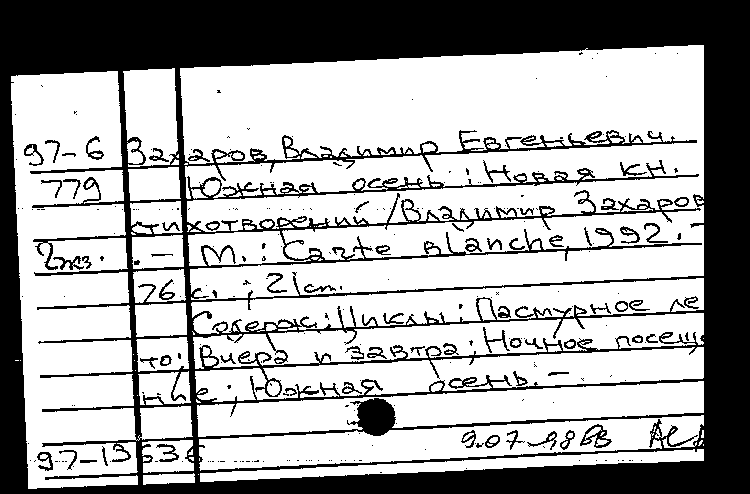 97-6 Захаров, Владимир Евгеньевич.
779 Южная осень : Новая кн.
стихотворений / Владимир Захаров
2экз. . — М. : Carte blanche, 1992. —
76 с. ; 21 cm.
Содерж.: Циклы: Пасмурное ле
то; Вчера и завтра; Ночное посеще
ние; Южная осень. —
9.07-98
97-13636